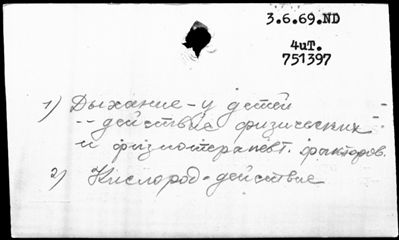 3.6.69.ND
4иТ.
751397
1) Дыхание - у детей
-- действие физических
и физиотерапевт. факторов.
2) Кислород - действие